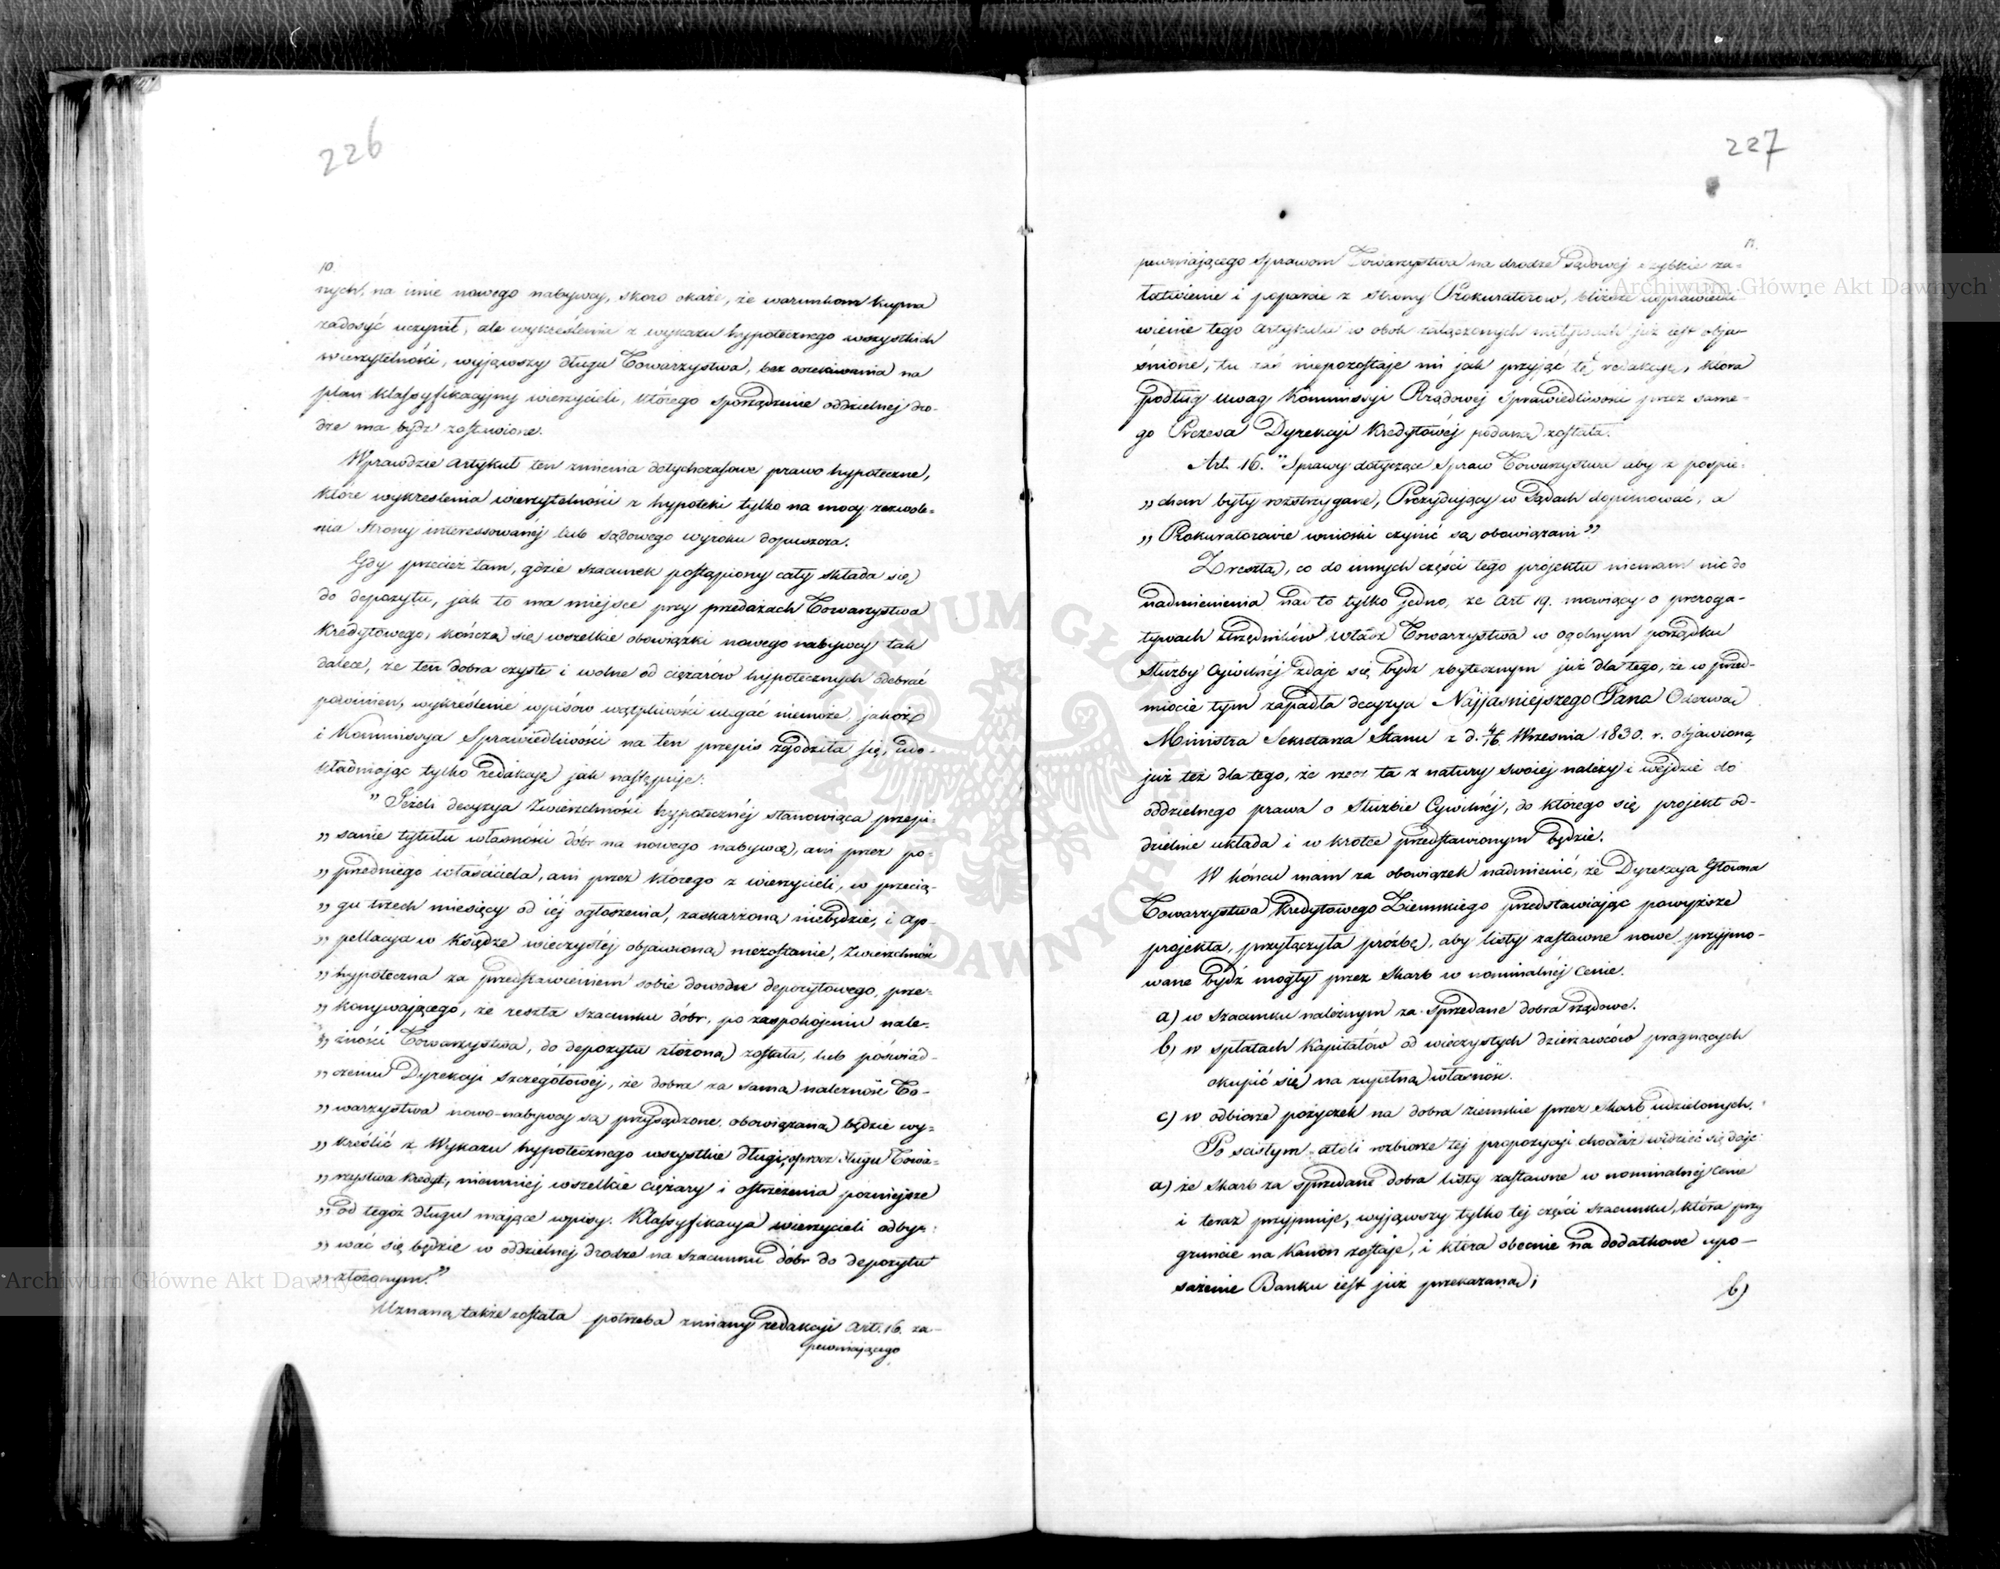 226
10.
nych, na imie nowego nabywcy, skoro okaże, że warunkom kupna
zadosyć uczynił, ale wykreślenia z wykazu hypotecznego wszystkich
wierzytelności, wyjąwszy długu Towarzystwa, bez oczekiwania na
plan klassyfikacyjny wierzycieli, którego sporządzenie oddzielnej dro-
dze ma bydź zostawione.
Wprawdzie Artykuł ten zmienia dotychczasowe prawo hypoteczne,
które wykreślenia wierzytelności z hypoteki tylko na mocy zezwole-
nia Strony interessowanéj lub sądowego wyroku dopuszcza.
Gdy przecież tam, gdzie szacunek postąpiony cały składa się
do depozytu, jak to ma miejsce przy przedażach Towarzystwa
Kredytowego, kończą się wszelkie obowiązki nowego nabywcy tak
dalece, że ten dobra czyste i wolne od ciężarów hypotecznych odebrać
powinien, wykreślenie wpisów wątpliwości ulegać niemoże, jakoż
i Kommissya Sprawiedliwości na ten przepis zgodziła się, do-
kładniając tylko redakcyą jak następuje:
" Jeżeli decyzya Zwierzchności hypotecznéj stanowiąca przepi-
" sanie tytułu własności dóbr na nowego nabywcę, ani przez po-
" przedniego właściciela, ani przez którego z wierzycieli, w przecią-
" gu trzech miesięcy od iéj ogłoszenia, zaskarżoną niebędzie, i ap-
" pellacya w księdze wieczystéj objawioną niezostanie, Zwierzchność
" hypoteczna za przedstawieniem sobie dowodu depozytowego, prze-
" konywającego, że reszta szacunku dóbr, po zaspokojeniu nale-
" żności Towarzystwa, do depozytu złożoną została, lub poświad-
" czeniu Dyrekcyi Szczegółowéj, że dobra za samą należność To-
" warzystwa nowo-nabywcy są przysądzone, obowiązaną będzie wy-
" kreślić z Wykazu hypotecznego wszystkie długi, oprócz długu Towa-
" rzystwa Kredyt, niemniej wszelkie ciężary i ostrzeżenia późniejsze
" od tegoż długu mające wpisy. Klassyfikacya wierzycieli odby-
" wać się będzie w oddzielnej drodze na szacunku dóbr do depozytu
" złożonym."
Uznaną także została potrzeba zmiany redakcyi Art. 16. za-
pewniającego
227
11.
pewniającego Sprawom Towarzystwa na drodze Sądowej szybkie za-
łatwienie i poparcie z strony Prokuratorów, bliższe usprawiedli-
wienie tego Artykułu w obok załączonych motywach już iest obja-
śnione, tu zaś niepozostaje mi jak przyjąć tę redakcyą, która
podług uwag Kommissyi Rządowej Sprawiedliwości przez same-
go Prezesa Dyrekcyi Kredytowéj podaną została.
Art. 16. "Sprawy dotyczące Spraw Towarzystwa aby z pośpie-
" chem były rozstrzygane, Prezydujący w Sądach dopilnować, a
" Prokuratorowie wnioski czynić są obowiązani"
Zresztą, co do innych części tego projektu niemam nic do
nadmienienia, nad to tylko jedno, że Art 19. mówiący o preroga-
tywach Urzędników Władz Towarzystwa w ogólnym porządku
Służby Cywilnéj zdaje się bydź zbytecznym już dla tego, że w przed-
miocie tym zapadła decyzya Najjaśniejszego Pana Odezwą
Ministra Sekretarza Stanu z d. 4/16 Września 1830. r. objawiona,
już też dla tego, że rzecz ta z natury swoiej należy i wejdzie do
oddzielnego prawa o Służbie Cywilnéj, do którego się projekt od-
dzielnie układa i w krótce przedstawionym będzie.
W końcu mam za obowiązek nadmienić, że Dyrekcya Główna
Towarzystwa Kredytowego Ziemskiego przedstawiając powyższe
projekta, przyłączyła prośbę, aby listy zastawne nowe przyjmo-
wane bydź mogły przez Skarb w nominalnéj cenie.
a) w szacunku należnym za sprzedane dobra rządowe.
b) w spłatach kapitałów od wieczystych dzierżawców pragnących
okupić się na zupełną własność.
c) w odbiorze pożyczek na dobra ziemskie przez Skarb udzielonych.
Po ścisłym atoli rozbiorze tej propozycyi chociaż widzieć się daje
a) że Skarb za sprzedane dobra listy zastawne w nominalnéj cenie
i teraz przyjmuje, wyjąwszy tylko tej części szacunku, która przy
gruncie na Kanon zostaje, i która obecnie na dodatkowe upo-
sażenie Banku iest już przekazaną;
b)
Archiwum Główne Akt Dawnych
Archiwum Główne Akt Dawnych
ARCHIWUM GŁÓWNE AKT DAWNYCH